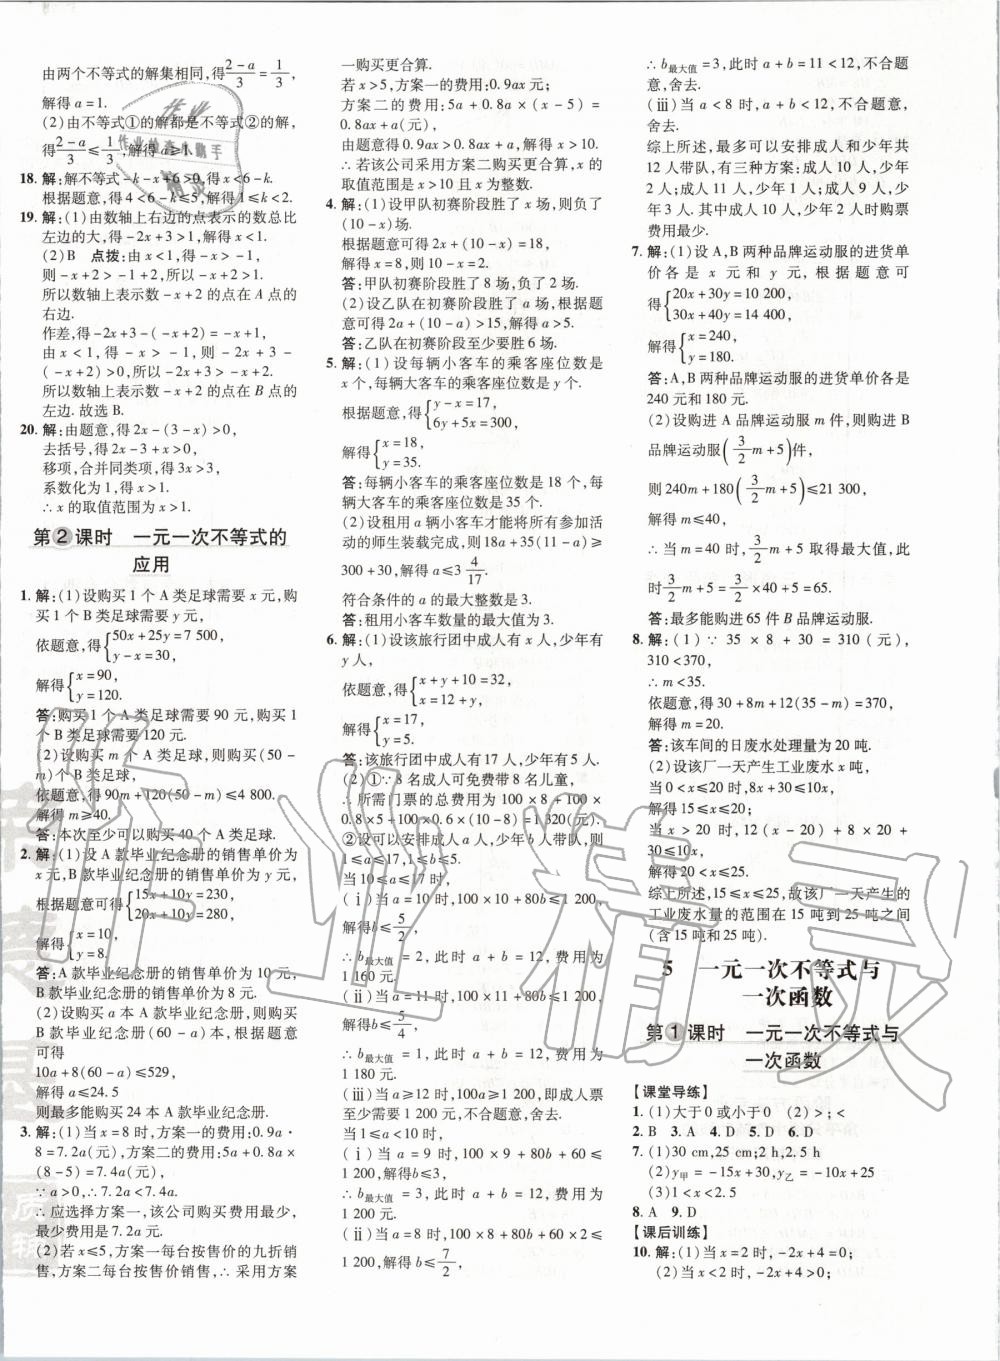 由两个不等式的解集相同,得(2-a)/3=1/3,
解得 a=1.
(2)由不等式①的解都是不等式②的解,
得(2-a)/3≤1/3,解得 a≥1.
18. 解:解不等式-k-x+6>0,得 x<6-k.
根据题意,得 4<6-k≤5,解得 1≤k<2.
19. 解:(1)由数轴上右边的点表示的数总比
左边的大,得-2x+3>1,解得 x<1.
(2)B 点拨:由 x<1,得-x>-1,
则-x+2>-1+2,所以-x+2>1.
所以数轴上表示数-x+2 的点在 A 点的
右边.
作差,得-2x+3-(-x+2)=-x+1,
由 x<1,得 -x>-1,则 -2x+3-
(-x+2)>0,所以-2x+3>-x+2.
所以数轴上表示数-x+2 的点在 B 点的
左边. 故选 B.
20. 解:由题意,得 2x-(3-x)>0,
去括号,得 2x-3+x>0,
移项,合并同类项,得 3x>3,
系数化为 1,得 x>1.
∴x 的取值范围为 x>1.
第2课时 一元一次不等式的
应用
1. 解:(1)设购买 1 个 A 类足球需要 x 元,购
买 1 个 B 类足球需要 y 元,
依题意,得{50x+25y=7 500,
y-x=30,
解得{x=90,
y=120.
答:购买 1 个 A 类足球需要 90 元,购买 1
个 B 类足球需要 120 元.
(2)设购买 m 个 A 类足球,则购买(50-
m)个 B 类足球,
依题意,得 90m+120(50-m)≤4 800.
解得 m≥40.
答:本次至少可以购买 40 个 A 类足球.
2. 解:(1)设 A 款毕业纪念册的销售单价为
x 元,B 款毕业纪念册的销售单价为 y 元,
根据题意可得{15x+10y=230,
20x+10y=280,
解得{x=10,
y=8.
答:A 款毕业纪念册的销售单价为 10 元,
B 款毕业纪念册的销售单价为 8 元.
(2)设购买 a 本 A 款毕业纪念册,则购
买 B 款毕业纪念册(60-a)本,根据题意
可得
10a+8(60-a)≤529,
解得 a≤24.5
则最多能够购买 24 本 A 款毕业纪念册.
3. 解:(1)当 x=8 时,方案一的费用:0.9a·
8=7.2a(元),方案二的费用:5a+0.8a×
(8-5)=7.4a(元),
∵a>0,∴7.2a<7.4a.
∴应选择方案一,该公司购买费用最少,
最少费用是 7.2a 元.
(2)若 x≤5,方案一每台按售价的九折销
售,方案二每台按售价销售,∴采用方案
一购买更合算.
若 x>5,方案一的费用:0.9ax 元;
方案二的费用:5a+0.8a×(x-5)=
0.8ax+a(元),
由题意得 0.9ax>0.8ax+a,解得 x>10.
∴若该公司采用方案二购买更合算,x 的
取值范围是 x>10 且 x 为整数.
4. 解:(1)设甲队初赛阶段胜了 x 场,则负了
(10-x)场.
根据题意可得 2x+(10-x)=18,
解得 x=8,10-x=2.
答:甲队初赛阶段胜了 8 场,负了 2 场.
(2)设乙队在初赛阶段胜了 a 场,根据题
意可得 2a+(10-a)>15,解得 a>5.
答:乙队在初赛阶段至少要胜 6 场.
5. 解:(1)设每辆小客车的乘客座位数是
x 个,每辆大客车的乘客座位数是 y 个.
根据题意,得{y-x=17,
6y+5x=300,
解得{x=18,
y=35.
答:每辆小客车的乘客座位数是 18 个,每
辆大客车的乘客座位数是 35 个.
(2)设租用 a 辆小客车才能将所有参加活动
的师生装载完成,则 18a+35(11-a)≥
300+30,解得 a≤3 4/17.
符合条件的 a 的最大整数是 3.
答:租用小客车数量的最大值为 3.
6. 解:(1)设该旅行团中成人有 x 人,少年有
y 人,
依题意,得{x+y+10=32,
x=12+y,
解得{x=17,
y=5.
答:该旅行团中成人有 17 人,少年有 5 人.
(2)①∵8 名成人可免费带 8 名儿童,
∴所需门票的总费用为 100×8+100×
0.8×5+100×0.6×(10-8)=1 320(元).
②设可以安排成人 a 人,少年 b 人带队,则
1≤a≤17,1≤b≤5.
当 10≤a≤17 时,
(ⅰ)当 a=10 时,100×10+80b≤1 200,
解得 b≤5/2,
∴b最大值=2,此时 a+b=12,费用为
1 160 元.
(ⅱ)当 a=11 时,100×11+80b≤1 200,
解得 b≤5/4,
∴b最大值=1,此时 a+b=12,费用为
1 180 元.
(ⅲ)当 a≥12 时,100a≥1 200,即成人票至
少需要 1 200 元,不合题意,舍去.
当 1≤a<10 时,
(ⅰ)当 a=9 时,100×9+80b+60≤
1 200,解得 b≤3,
∴b最大值=3,此时 a+b=12,费用为
1 200 元.
(ⅱ)当 a=8 时,100×8+80b+60×2≤
1 200,解得 b≤7/2,
∴b最大值=3,此时 a+b=11<12,不合题
意,舍去.
(ⅲ)当 a<8 时,a+b<12,不合题意,
舍去.
综上所述,最多可以安排成人和少年共
12 人带队,有三种方案:成人 10 人,少年
2 人;成人 11 人,少年 1 人;成人 9 人,少年
3 人. 其中成人 10 人,少年 2 人时购票
费用最少.
7. 解:(1)设 A,B 两种品牌运动服的进货单
价各是 x 元和 y 元,根据题意可
得{20x+30y=10 200,
30x+40y=14 400,
解得{x=240,
y=180.
答:A,B 两种品牌运动服的进货单价各是
240 元和 180 元.
(2)设购进 A 品牌运动服 m 件,则购进 B
品牌运动服(3/2 m+5)件,
则 240m+180(3/2 m+5)≤21 300,
解得 m≤40,
∴当 m=40 时,3/2 m+5 取得最大值,此
时3/2 m+5=3/2×40+5=65.
答:最多能购进 65 件 B 品牌运动服.
8. 解:(1)∵35×8+30=310(元),
310<370,
∴m<35.
依题意,得 30+8m+12(35-m)=370,
解得 m=20.
答:该车间的日废水处理量为 20 吨.
(2)设该厂一天产生工业废水 x 吨,
当 0<x≤20 时,8x+30≤10x,
解得 15≤x≤20;
当 x>20 时,12(x-20)+8×20
+30≤10x,
解得 20<x≤25.
综上所述,15≤x≤25,故该厂一天产生的
工业废水量的范围在 15 吨到 25 吨之间
(含 15 吨和 25 吨).
5 一元一次不等式与
一次函数
第1课时 一元一次不等式与
一次函数
【课堂导练】
1. (1)大于 0 或小于 0 (2)>;<
2. B 3. A 4. D 5. D 6. D
7. (1)30 cm,25 cm;2 h,2.5 h
(2)y甲=-15x+30,y乙=-10x+25
(3)1<x<2.5
8. A 9. D
【课后训练】
10. 解:(1)当 x=2 时,-2x+4=0;
(2)当 x<2 时,-2x+4>0;
作业精灵